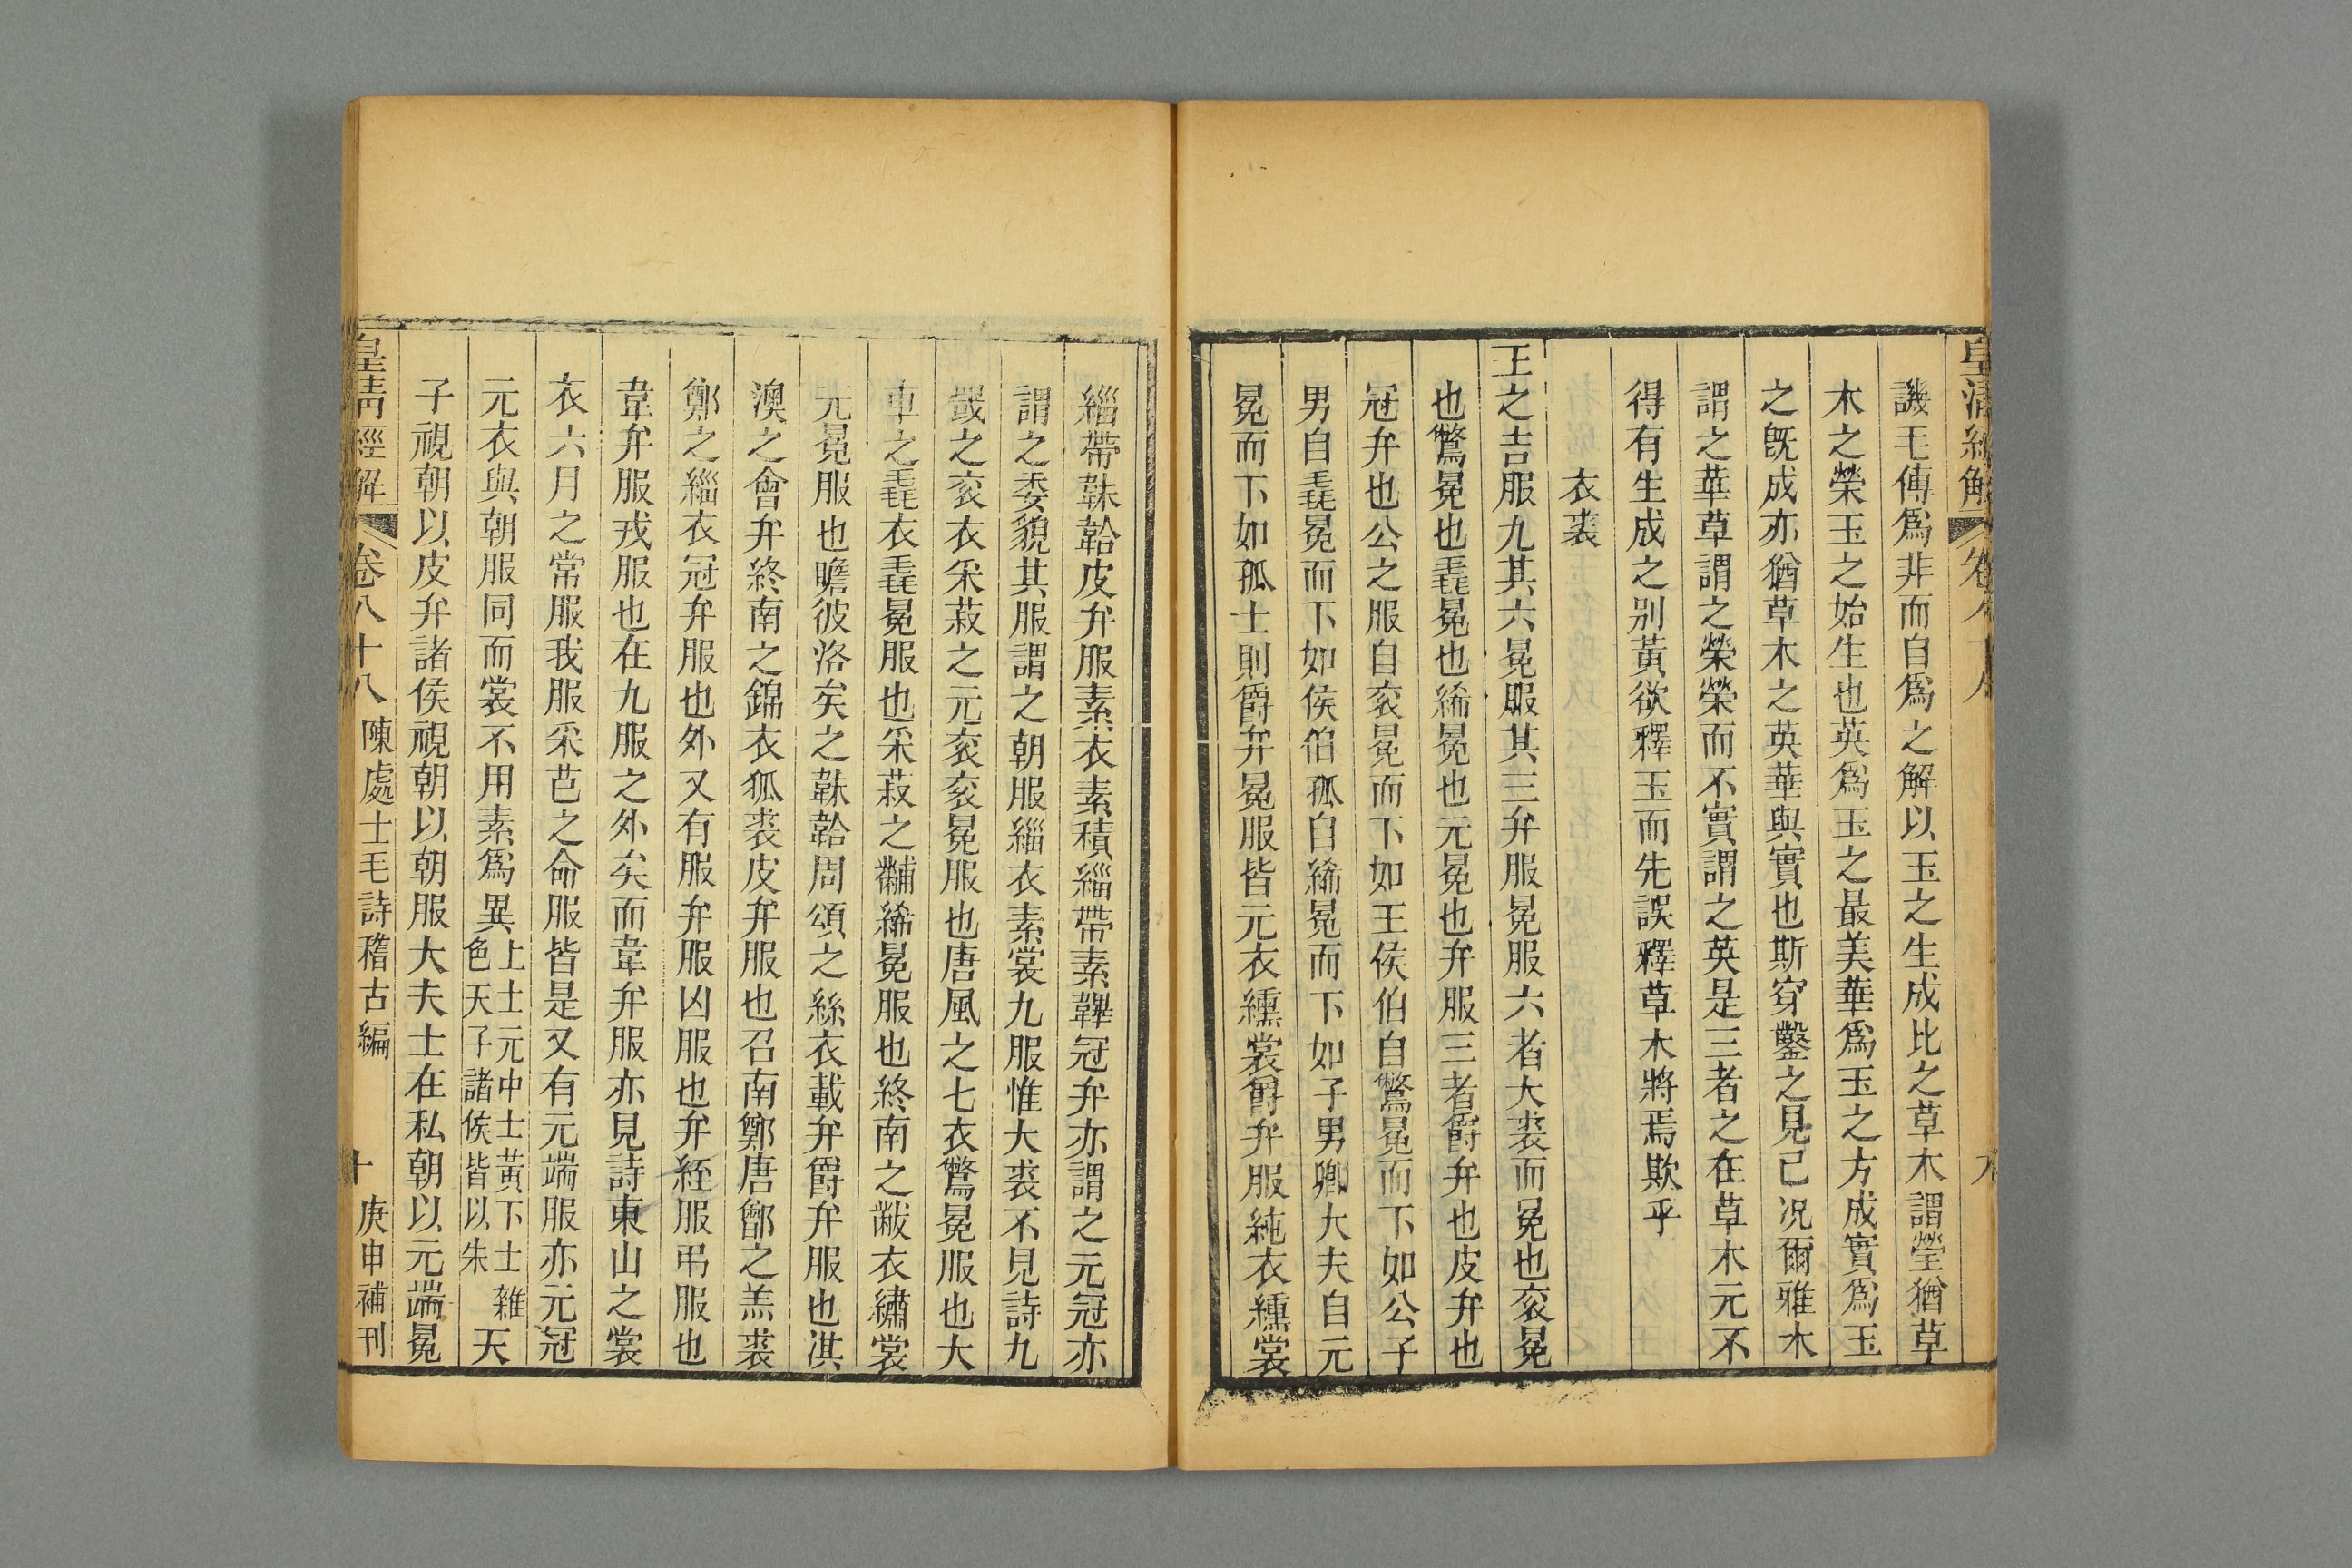 皇清經解 卷八十八 九
譏毛傳爲非而自爲之解以玉之生成比之草木謂瑩猶草
木之榮玉之始生也英爲玉之最美華爲玉之方成實爲玉
之旣成亦猶草木之英華與實也斯穿鑿之見已况爾雅木
謂之華草謂之榮榮而不實謂之英是三者之在草木元不
得有生成之别黃欲釋玉而先誤釋草木將焉欺乎
衣裘
王之吉服九其六冕服其三弁服冕服六者大裘而冕也衮冕
也鷩冕也毳冕也絺冕也元冕也弁服三者爵弁也皮弁也
冠弁也公之服自衮冕而下如王侯伯自鷩冕而下如公子
男自毳冕而下如侯伯孤自絺冕而下如子男卿大夫自元
冕而下如孤士則爵弁冕服皆元衣纁裳爵弁服純衣纁裳
緇帶韎韐皮弁服素衣素積緇帶素韠冠弁亦謂之元冠亦
謂之委貌其服謂之朝服緇衣素裳九服惟大裘不見詩九
罭之衮衣采菽之元衮衮冕服也唐風之七衣鷩冕服也大
車之毳衣毳冕服也采菽之黼絺冕服也終南之黻衣繡裳
元冕服也瞻彼洛矣之韎韐周頌之絲衣載弁爵弁服也淇
澳之會弁終南之錦衣狐裘皮弁服也召南鄭唐鄶之羔裘
鄭之緇衣冠弁服也外又有服弁服凶服也弁絰服弔服也
韋弁服戎服也在九服之外矣而韋弁服亦見詩東山之裳
衣六月之常服我服采芑之命服皆是又有元端服亦元冠
元衣與朝服同而裳不用素爲異上士元中士黃下士雜色天子諸侯皆以朱天
子視朝以皮弁諸侯視朝以朝服大夫士在私朝以元端冕
皇清經解 卷八十八 陳處士毛詩稽古編 十 庚申補刊